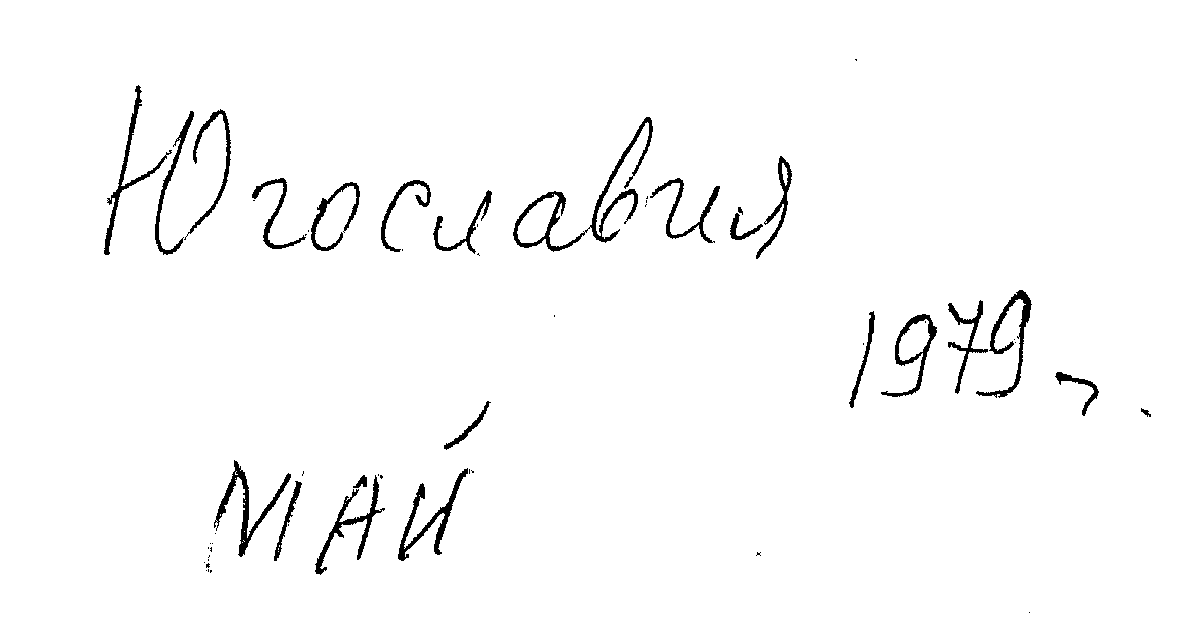 Югославия
1979 г.
МАЙ